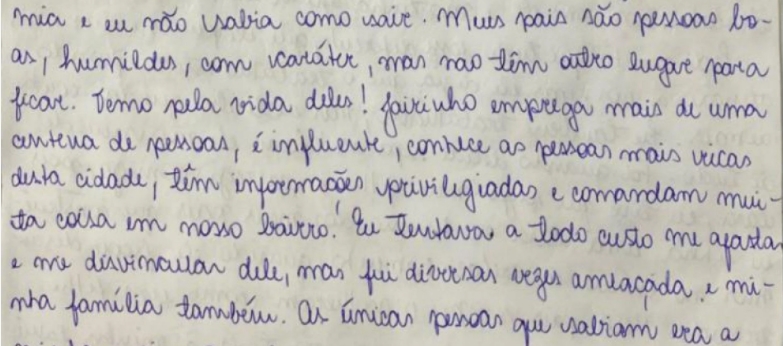 mia e eu não sabia como sair. Meus pais são pessoas bo-
as, humildes, com caráter, mas não têm outro lugar para
ficar. Temo pela vida deles! Jairinho emprega mais de uma
centena de pessoas, é influente, conhece as pessoas mais ricas
desta cidade, têm informações privilegiadas e comandam mui-
ta coisa em nosso bairro. Eu tentava a todo custo me afastar
e me disvincular dele, mas fui diversas vezes ameaçada e mi-
nha família também. As únicas pessoas que sabiam era a